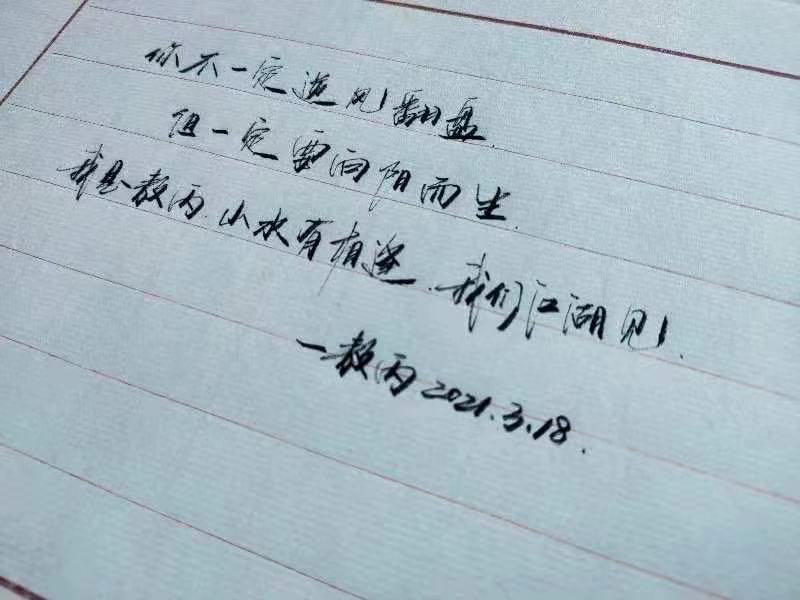 你不一定逆风翻盘.
但一定要向阳而生.
我是教丙.山水有相逢.我们江湖见.
一教丙 2021.3.18.